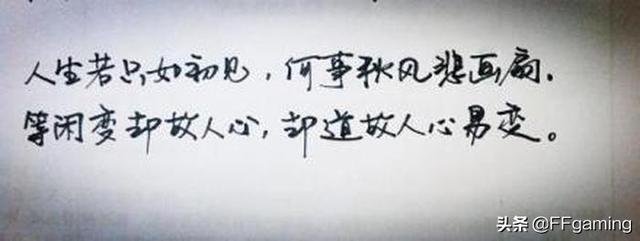 人生若只如初见，何事秋风悲画扇.
等闲变却故人心，却道故人心易变。
头条 @FFgaming